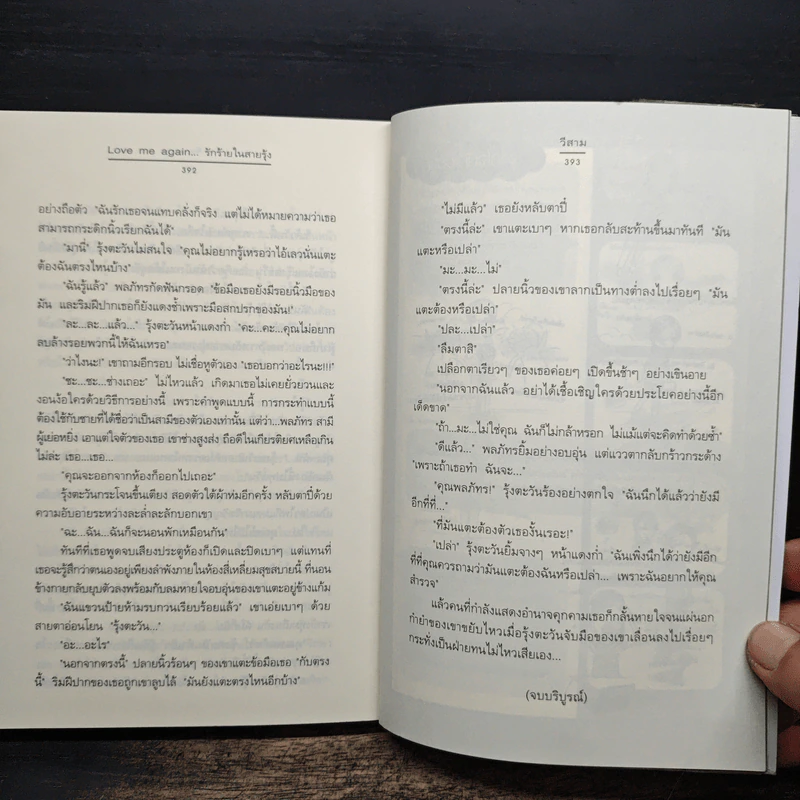 Love me again... รักร้ายในสายรุ้ง
392
อย่างถือตัว "ฉันรักเธอจนแทบคลั่งก็จริง แต่ไม่ได้หมายความว่าเธอ
สามารถกระดิกนิ้วเรียกฉันได้"
"มานี่" รุ้งตะวันไม่สนใจ "คุณไม่อยากรู้เหรอว่าไอ้เลวนั่นแตะ
ต้องฉันตรงไหนบ้าง"
"ฉันรู้แล้ว" พลภัทรกัดฟันกรอด "ข้อมือเธอยังมีรอยนิ้วมือของ
มัน และริมฝีปากเธอก็ยังแดงช้ำเพราะมือสกปรกของมัน!"
"ละ...ละ...แล้ว..." รุ้งตะวันหน้าแดงก่ำ "คะ...คะ...คุณไม่อยาก
ลบล้างรอยพวกนี้ให้ฉันเหรอ"
"ว่าไงนะ!" เขาถามอีกรอบ ไม่เชื่อหูตัวเอง "เธอบอกว่าอะไรนะ!!!"
"ชะ...ชะ...ช่างเถอะ" ไม่ไหวแล้ว เกิดมาเธอไม่เคยยั่วยวนและ
งอนง้อใครด้วยวิธีการอย่างนี้ เพราะคำพูดแบบนี้ การกระทำแบบนี้
ต้องใช้กับชายที่ได้ชื่อว่าเป็นสามีของตัวเองเท่านั้น แต่ว่า...พลภัทร สามี
ผู้เย่อหยิ่ง เอาแต่ใจตัวของเธอ เขาช่างสูงส่ง ถือดีในเกียรติยศเหลือเกิน
ไม่ล่ะ เธอ...เธอ...
"คุณจะออกจากห้องก็ออกไปเถอะ"
รุ้งตะวันกระโจนขึ้นเตียง สอดตัวใต้ผ้าห่มอีกครั้ง หลับตาปี๋ด้วย
ความอับอายระหว่างละล่ำละลักบอกเขา
"ฉะ...ฉัน...ฉันก็จะนอนพักเหมือนกัน"
ทันทีที่เธอพูดจบเสียงประตูห้องก็เปิดและปิดเบาๆ แต่แทนที่
เธอจะรู้สึกว่าตนเองอยู่เพียงลำพังภายในห้องสี่เหลี่ยมสุขสบายนี้ ที่นอน
ข้างกายกลับยุบตัวลงพร้อมกับลมหายใจอบอุ่นของเขาแตะอยู่ข้างแก้ม
"ฉันแขวนป้ายห้ามรบกวนเรียบร้อยแล้ว" เขาเอ่ยเบาๆ ด้วย
สายตาอ่อนโยน "รุ้งตะวัน..."
"อะ...อะไร"
"นอกจากตรงนี้" ปลายนิ้วร้อนๆ ของเขาแตะข้อมือเธอ "กับตรง
นี้" ริมฝีปากของเธอถูกเขาลูบไล้ "มันยังแตะตรงไหนอีกบ้าง"
วีสาม
393
"ไม่มีแล้ว" เธอยังหลับตาปี๋
"ตรงนี้ล่ะ" เขาแตะเบาๆ หากเธอกลับสะท้านขึ้นมาทันที "มัน
แตะหรือเปล่า"
"มะ...มะ...ไม่"
"ตรงนี้ล่ะ" ปลายนิ้วของเขาลากเป็นทางต่ำลงไปเรื่อยๆ "มัน
แตะต้องหรือเปล่า"
"ปละ...เปล่า"
"ลืมตาสิ"
เปลือกตาเรียวๆ ของเธอค่อยๆ เปิดขึ้นช้าๆ อย่างเขินอาย
"นอกจากฉันแล้ว อย่าได้เชื้อเชิญใครด้วยประโยคอย่างนี้อีก
เด็ดขาด"
"ถ้า...มะ...ไม่ใช่คุณ ฉันก็ไม่กล้าหรอก ไม่แม้แต่จะคิดทำด้วยซ้ำ"
"ดีแล้ว..." พลภัทรยิ้มอย่างอบอุ่น แต่แววตากลับกร้าวกระด้าง
"เพราะถ้าเธอทำ ฉันจะ..."
"คุณพลภัทร!" รุ้งตะวันร้องอย่างตกใจ "ฉันนึกได้แล้วว่ายังมี
อีกที่ที่..."
"ที่มันแตะต้องตัวเธองั้นเรอะ!"
"เปล่า" รุ้งตะวันยิ้มจางๆ หน้าแดงก่ำ "ฉันเพิ่งนึกได้ว่ายังมีอีก
ที่ที่คุณควรถามว่ามันแตะต้องฉันหรือเปล่า... เพราะฉันอยากให้คุณ
สำรวจ"
แล้วคนที่กำลังแสดงอำนาจคุกคามเธอก็กลั้นหายใจจนแผ่นอก
กำยำของเขาขยับไหวเมื่อรุ้งตะวันจับมือของเขาเลื่อนลงไปเรื่อยๆ
กระทั่งเป็นฝ่ายทนไม่ไหวเสียเอง...
(จบบริบูรณ์)